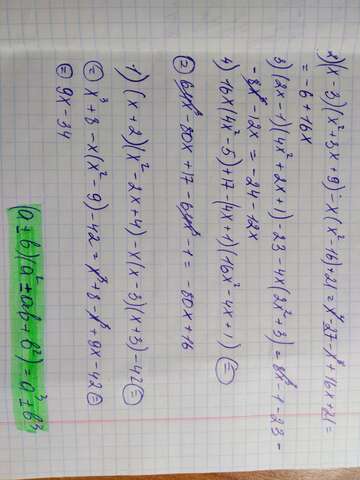 2)(x-3)(x²+3x+9)-x(x²-16)+21=x³-27-x³+16x+21=
=-6+16x
3)(2x-1)(4x²+2x+1)-23-4x(2x²+3)=8x³-1-23-
-8x³-12x=-24-12x
4) 16x(4x²-5)+17-(4x+1)(16x²-4x+1)⊜
⊜ 64x³-80x+17-64x³-1=-80x+16
1) (x+2)(x²-2x+4)-x(x-3)(x+3)-42⊜
⊜ x³+8-x(x²-9)-42=x³+8-x³+9x-42⊜
⊜ 9x-34
(a±b)(a²±ab+b²)=a³±b³